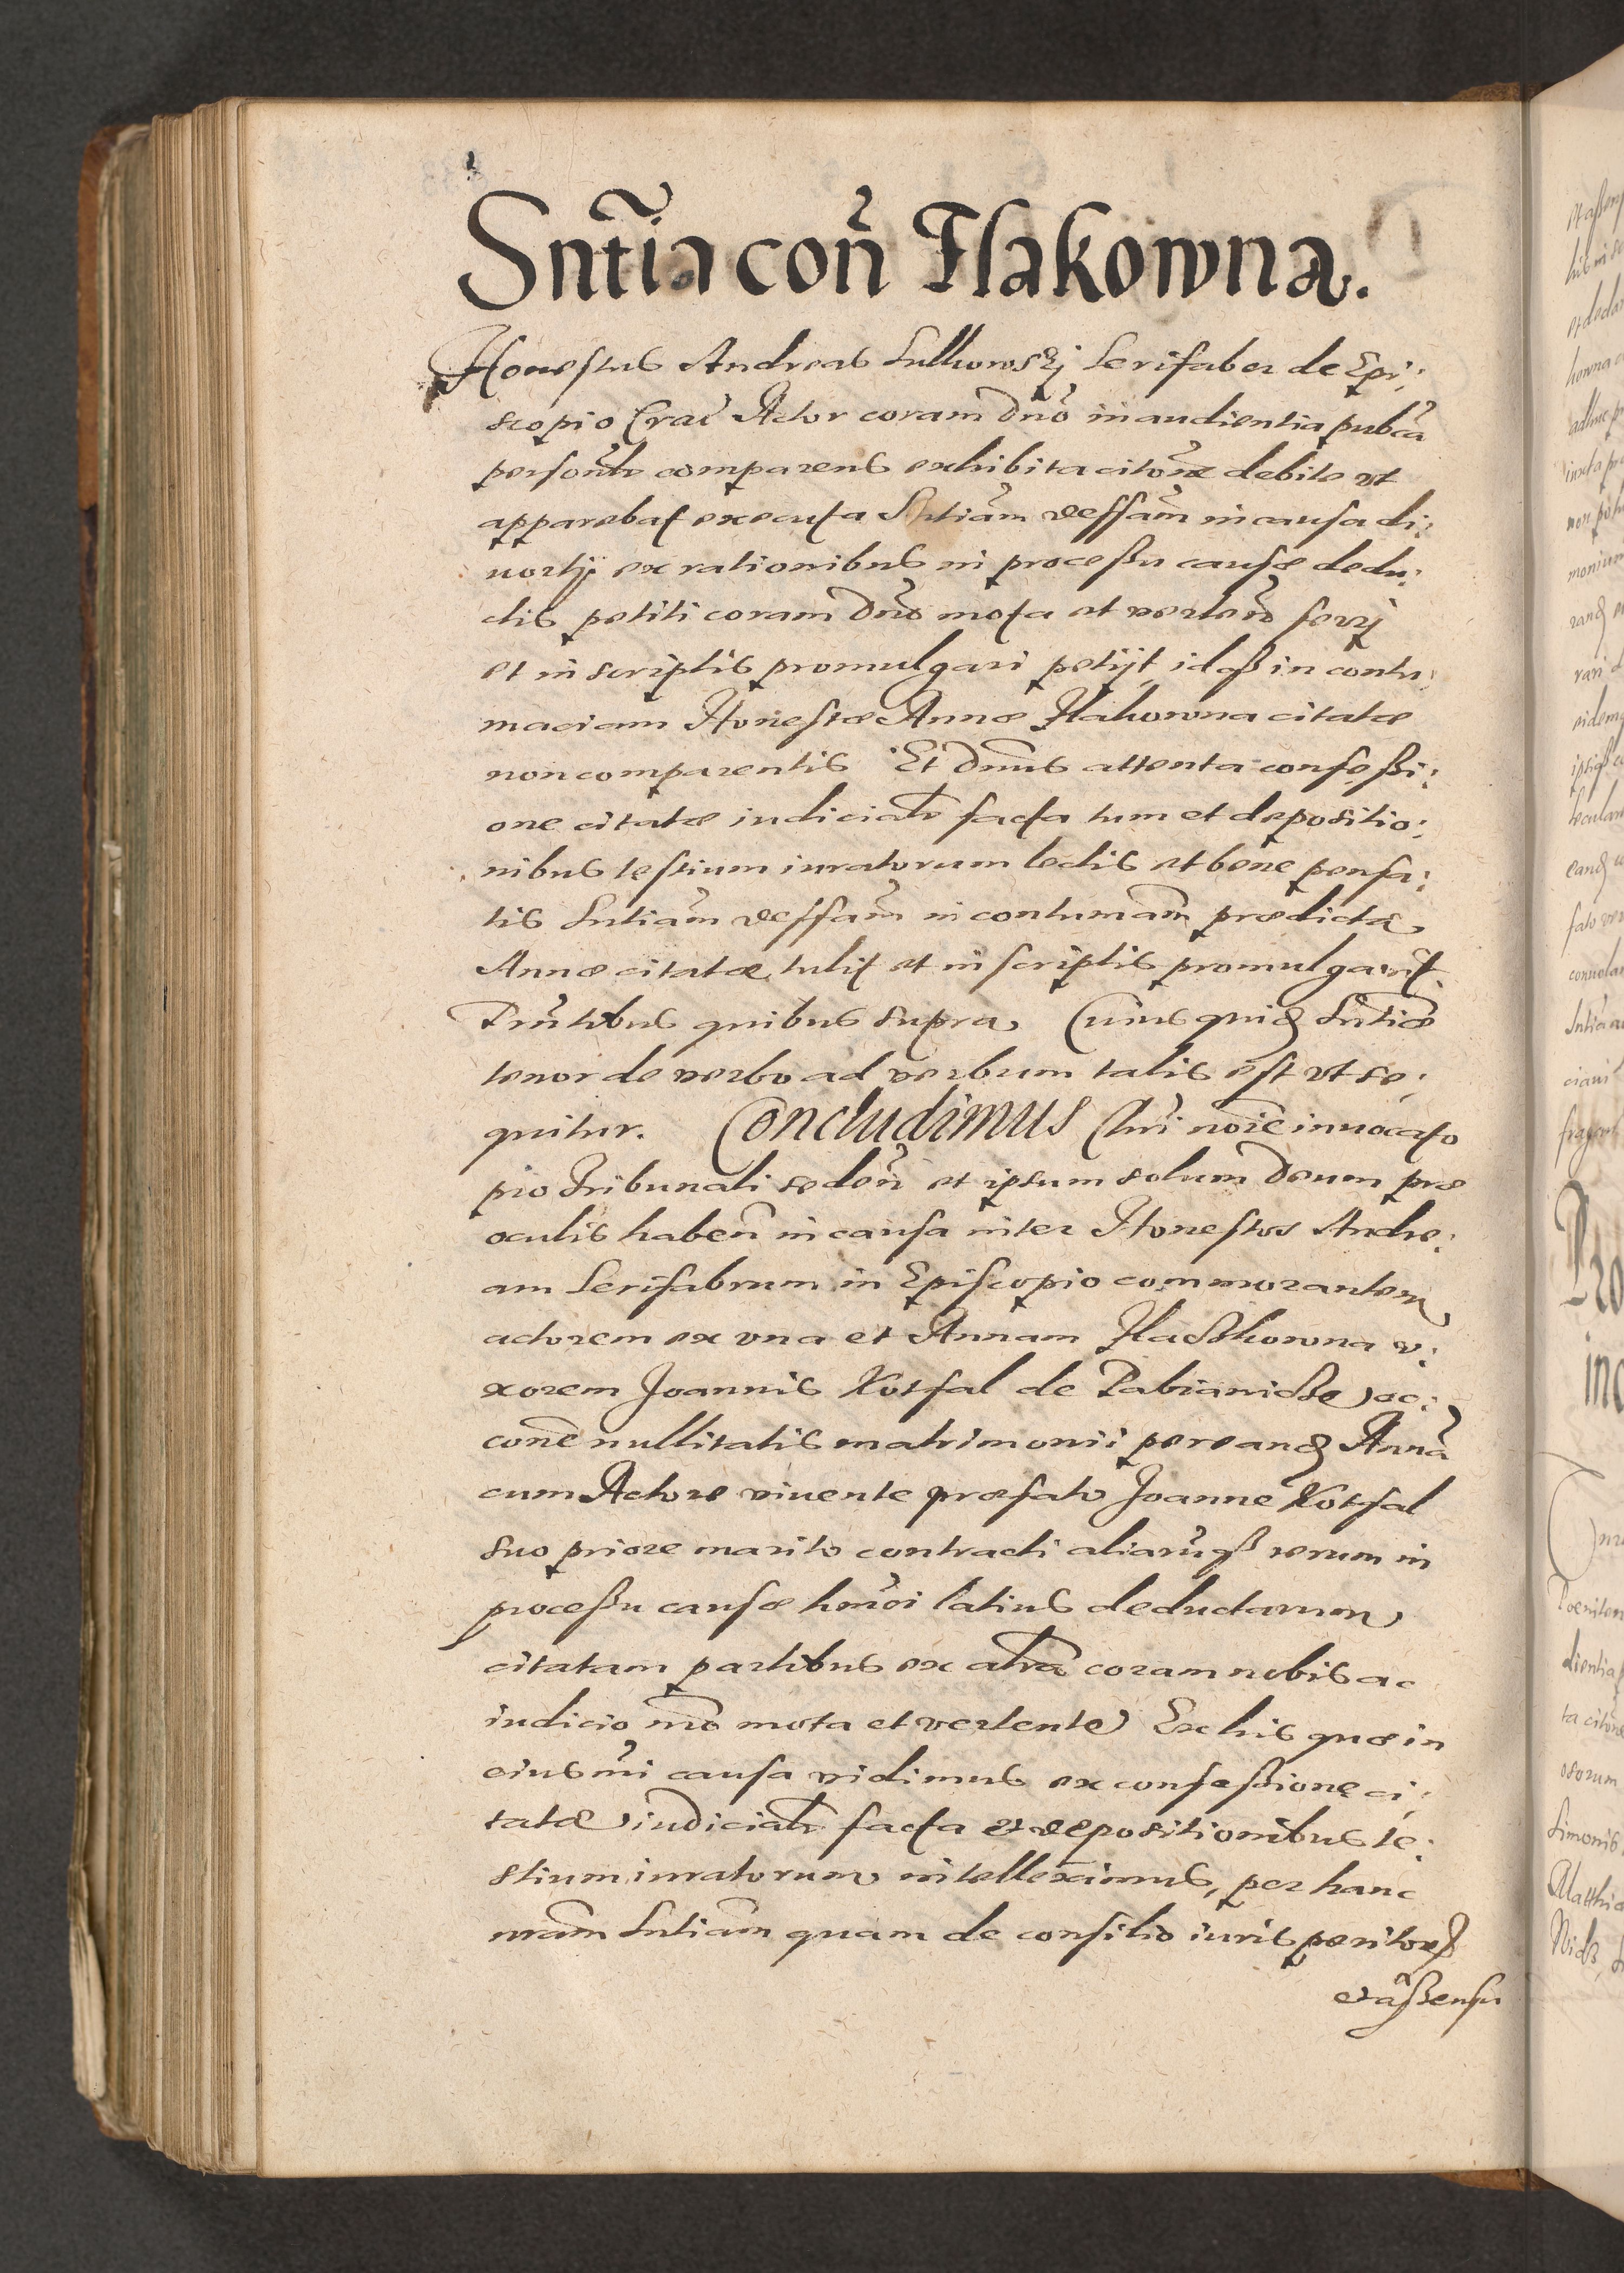 Sntia con Flakowna.
Honestus Andreas Sulkowskj Serifaber de Epi:
scopio Crac̃ Actor coram Dno in audientia pubca
personltr comparens exhibita citõne debite vt
apparebat executa Sntiam deffam in causa di:
uortij ex rationibus in processu causæ dedu:
ctis petiti coram Dno mota et verten̄ ferrj
et in scriptis promulgari petijt idqß in contu:
maciam Honestæ Annæ Flakowna citatæ
non comparentis Et Dnus attenta confessi:
one citatæ iudicialr facta tum et depositio:
nibus testium iuratorum lectis et bene pensa:
tis Sntiam deffam in contumam prædictæ
Annæ citatæ tulit et in scriptis promulgauit
Pñtibus quibus supra. Cuius quiđ Sntiæ
tenor de verbo ad verbum talis est vt se:
quitur. Concludimus Chri noie inuocato
pro Tribunali seden̄ et ipsum solum Deum præ
oculis haben̄ in causa inter Honestos Andre:
am Serifabrum in Episcopio commorantem
actorem ex vna et Annam Flaczkowna v:
xorem Joannis Kotfal de Pabianicze oc:
cone nullitatis matrimonii per eanđ Annã
cum Actore viuente præfato Joanne Kotfal
suo priore marito contracti aliarũqß rerum in
processu causæ hmõi latius deductarum
citatam partibus ex altra coram nobis ac
iudicio nro mota et vertente Ex his quæ in
eiusmi causa vidimus ex confessione ci:
tatæ iudicialr facta et depositionibus te:
stium iuratorum intelleximus, per hanc
nram Sntiam quam de consilio iuris peritorß
et assensu